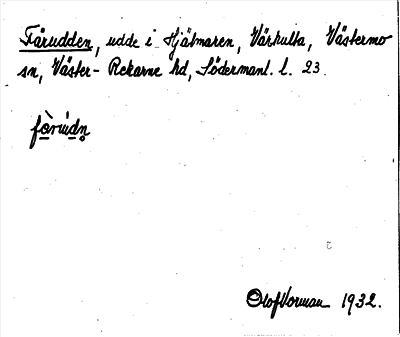 Fårudden, udde i Hjälmaren, Värhulta, Västermo
sn, Väster-Rekarne hd, Södermanl. l. 23.
Olof Vorman 1932.